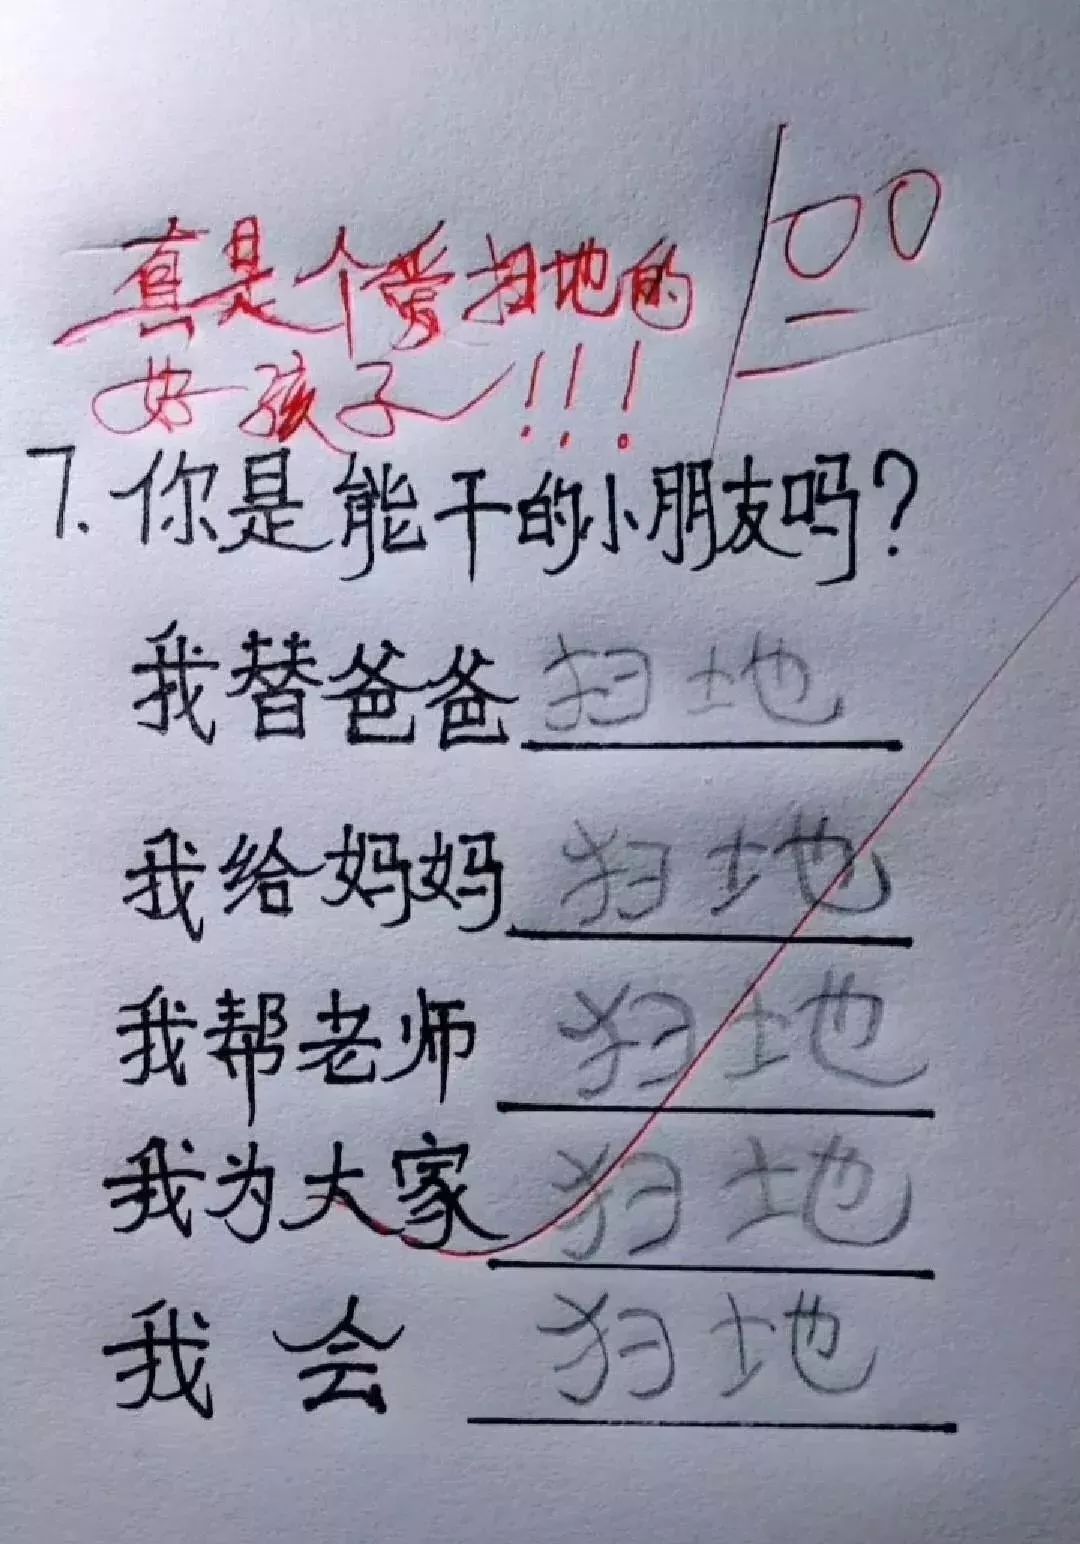 真是个爱扫地的
好孩子!!!
100
7.你是能干的小朋友吗?
我替爸爸扫地
我给妈妈扫地
我帮老师扫地
我为大家扫地
我会扫地